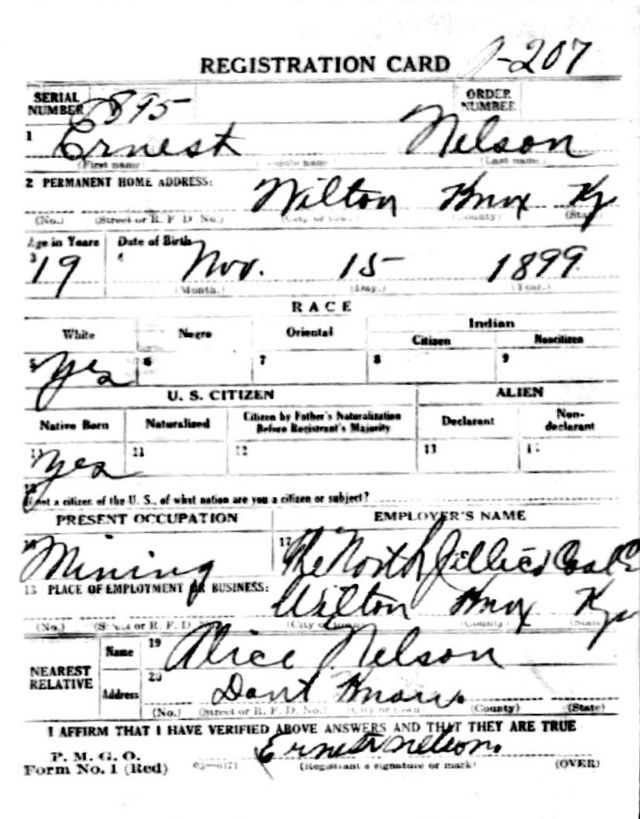 REGISTRATION CARD -207
SERIAL NUMBER 895 ORDER NUMBER
1 Ernest Nelson
(First name) (Last name)
2 PERMANENT HOME ADDRESS: Wilton Knox Ky
(No.) (Street or R. F. D. No.) (City or town) (County) (State)
Age in Years Date of Birth
3 19 4 Nov. 15 1899
(Month.) (Day.) (Year.)
RACE
White Negro Oriental Indian
Citizen Noncitizen
5 Yes 6 7 8 9
U. S. CITIZEN ALIEN
Native Born Naturalized Citizen by Father's Naturalization Before Registrant's Majority Declarant Non-declarant
Yes 11 12 13
not a citizen of the U. S., of what nation are you a citizen or subject?
PRESENT OCCUPATION EMPLOYER'S NAME
Mining 17 The North Jellico Coal Co
PLACE OF EMPLOYMENT OR BUSINESS: Wilton Knox Ky
(No.) (Street or R. F. D. (City or town) (County) (State)
NEAREST RELATIVE
Name 19 Alice Nelson
Address 20 Dont Know.
(No.) (Street or R. F. D. No.) (City or town) (County) (State)
I AFFIRM THAT I HAVE VERIFIED ABOVE ANSWERS AND THAT THEY ARE TRUE
P. M. G. O.
Form No. 1 (Red) Ernest Nelson.
(Registrant's signature or mark) (OVER)